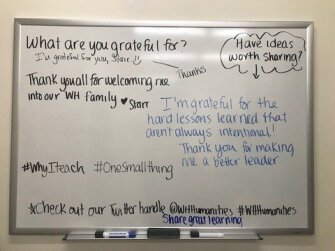 What are you grateful for?
I'm grateful for you, Starr. :)
Thanks
Have ideas
worth sharing?
Thank you all for welcoming me
into our WH family ♥ Starr
I'm grateful for the
hard lessons learned that
aren't always intentional!
Thank you for making
me a better leader.
#WhyITeach #OneSmallthing
*Check out our Twitter handle @WHHumanities #WHHumanities
Share great learning